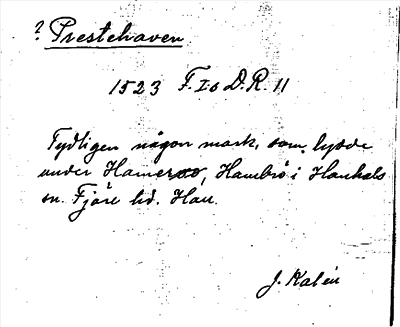 ? Prestehaven
1523 F. Is D.R. 11
Tydligen någon mark, som lydde
under Hamerøø, Hambrö i Hanhals
sn. Fjäre hd. Hall.
J. Kalén